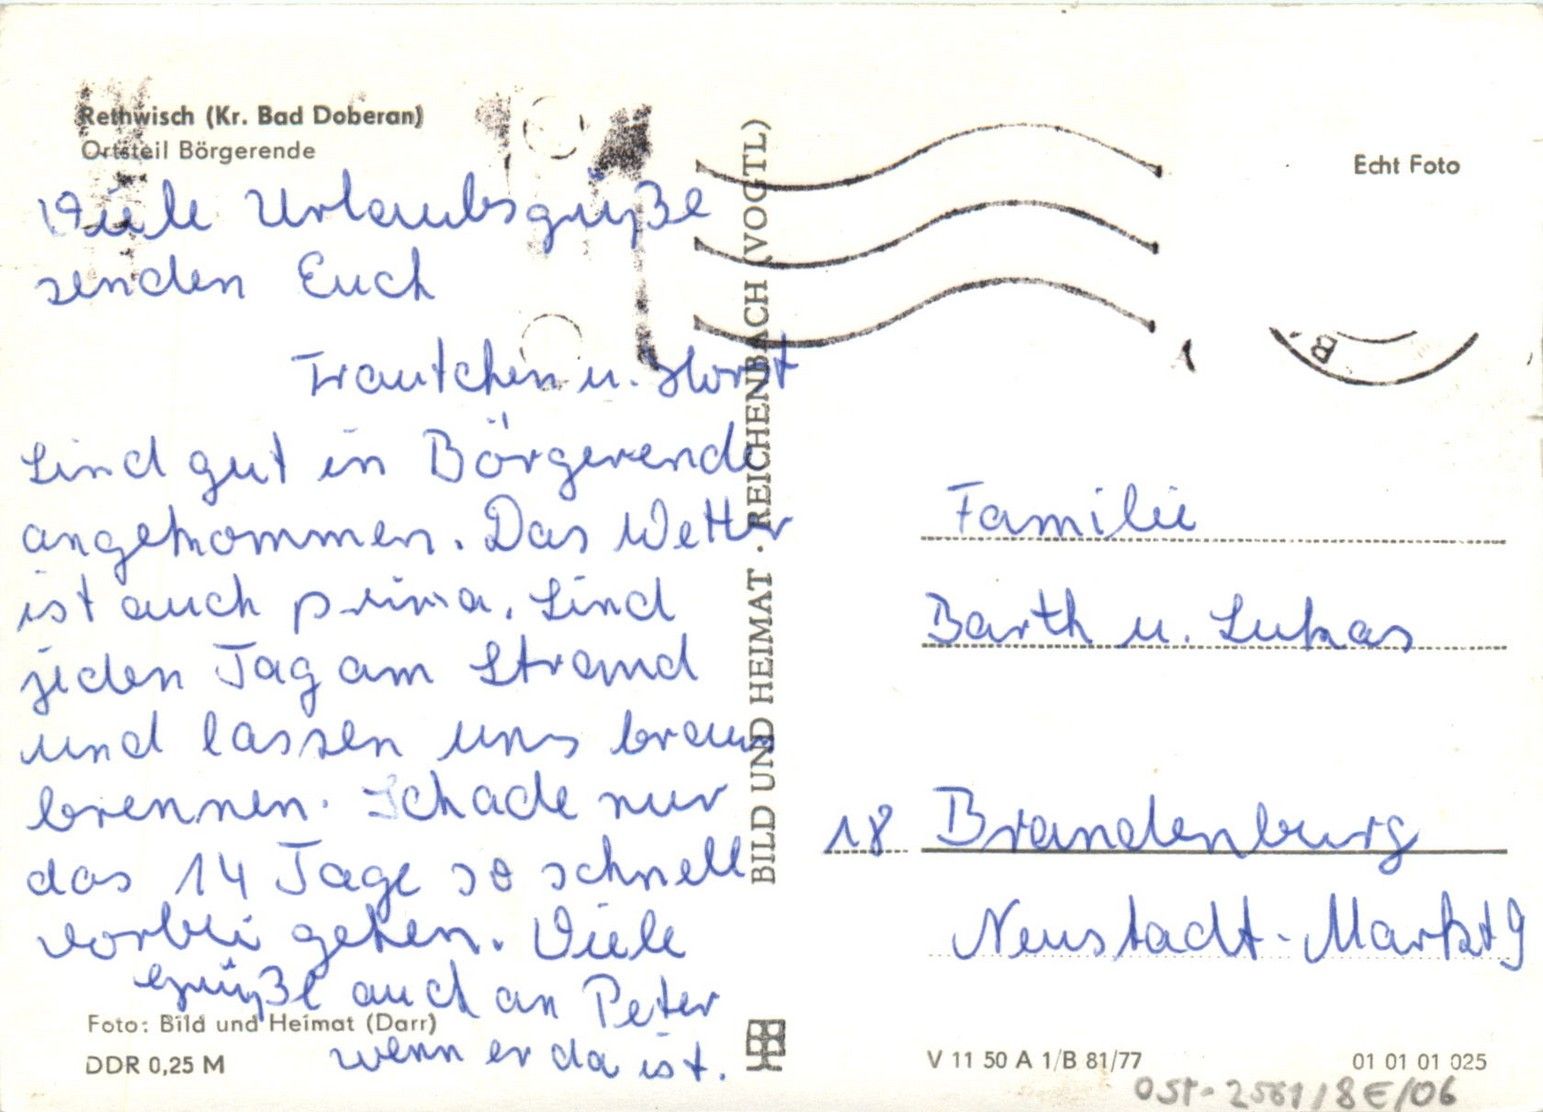 Rethwisch (Kr. Bad Doberan)
Ortsteil Börgerende
Viele Urlaubsgrüße
senden Euch
Trautchen u. Horst
Sind gut in Börgerende
angekommen. Das Wetter
ist auch prima. Sind
jeden Tag am Strand
und lassen uns braun
brennen. Schade nur
das 14 Tage so schnell
vorbei gehen. Viele
Grüße auch an Peter
wenn er da ist.
Foto: Bild und Heimat (Darr)
DDR 0,25 M
BILD UND HEIMAT · REICHENBACH (VOGTL)
Echt Foto
B
Familie
Barth u. Lukas
18 Brandenburg
Neustadt-Markt 9
V 11 50 A 1/B 81/77
01 01 01 025
OST-2561/8E/06